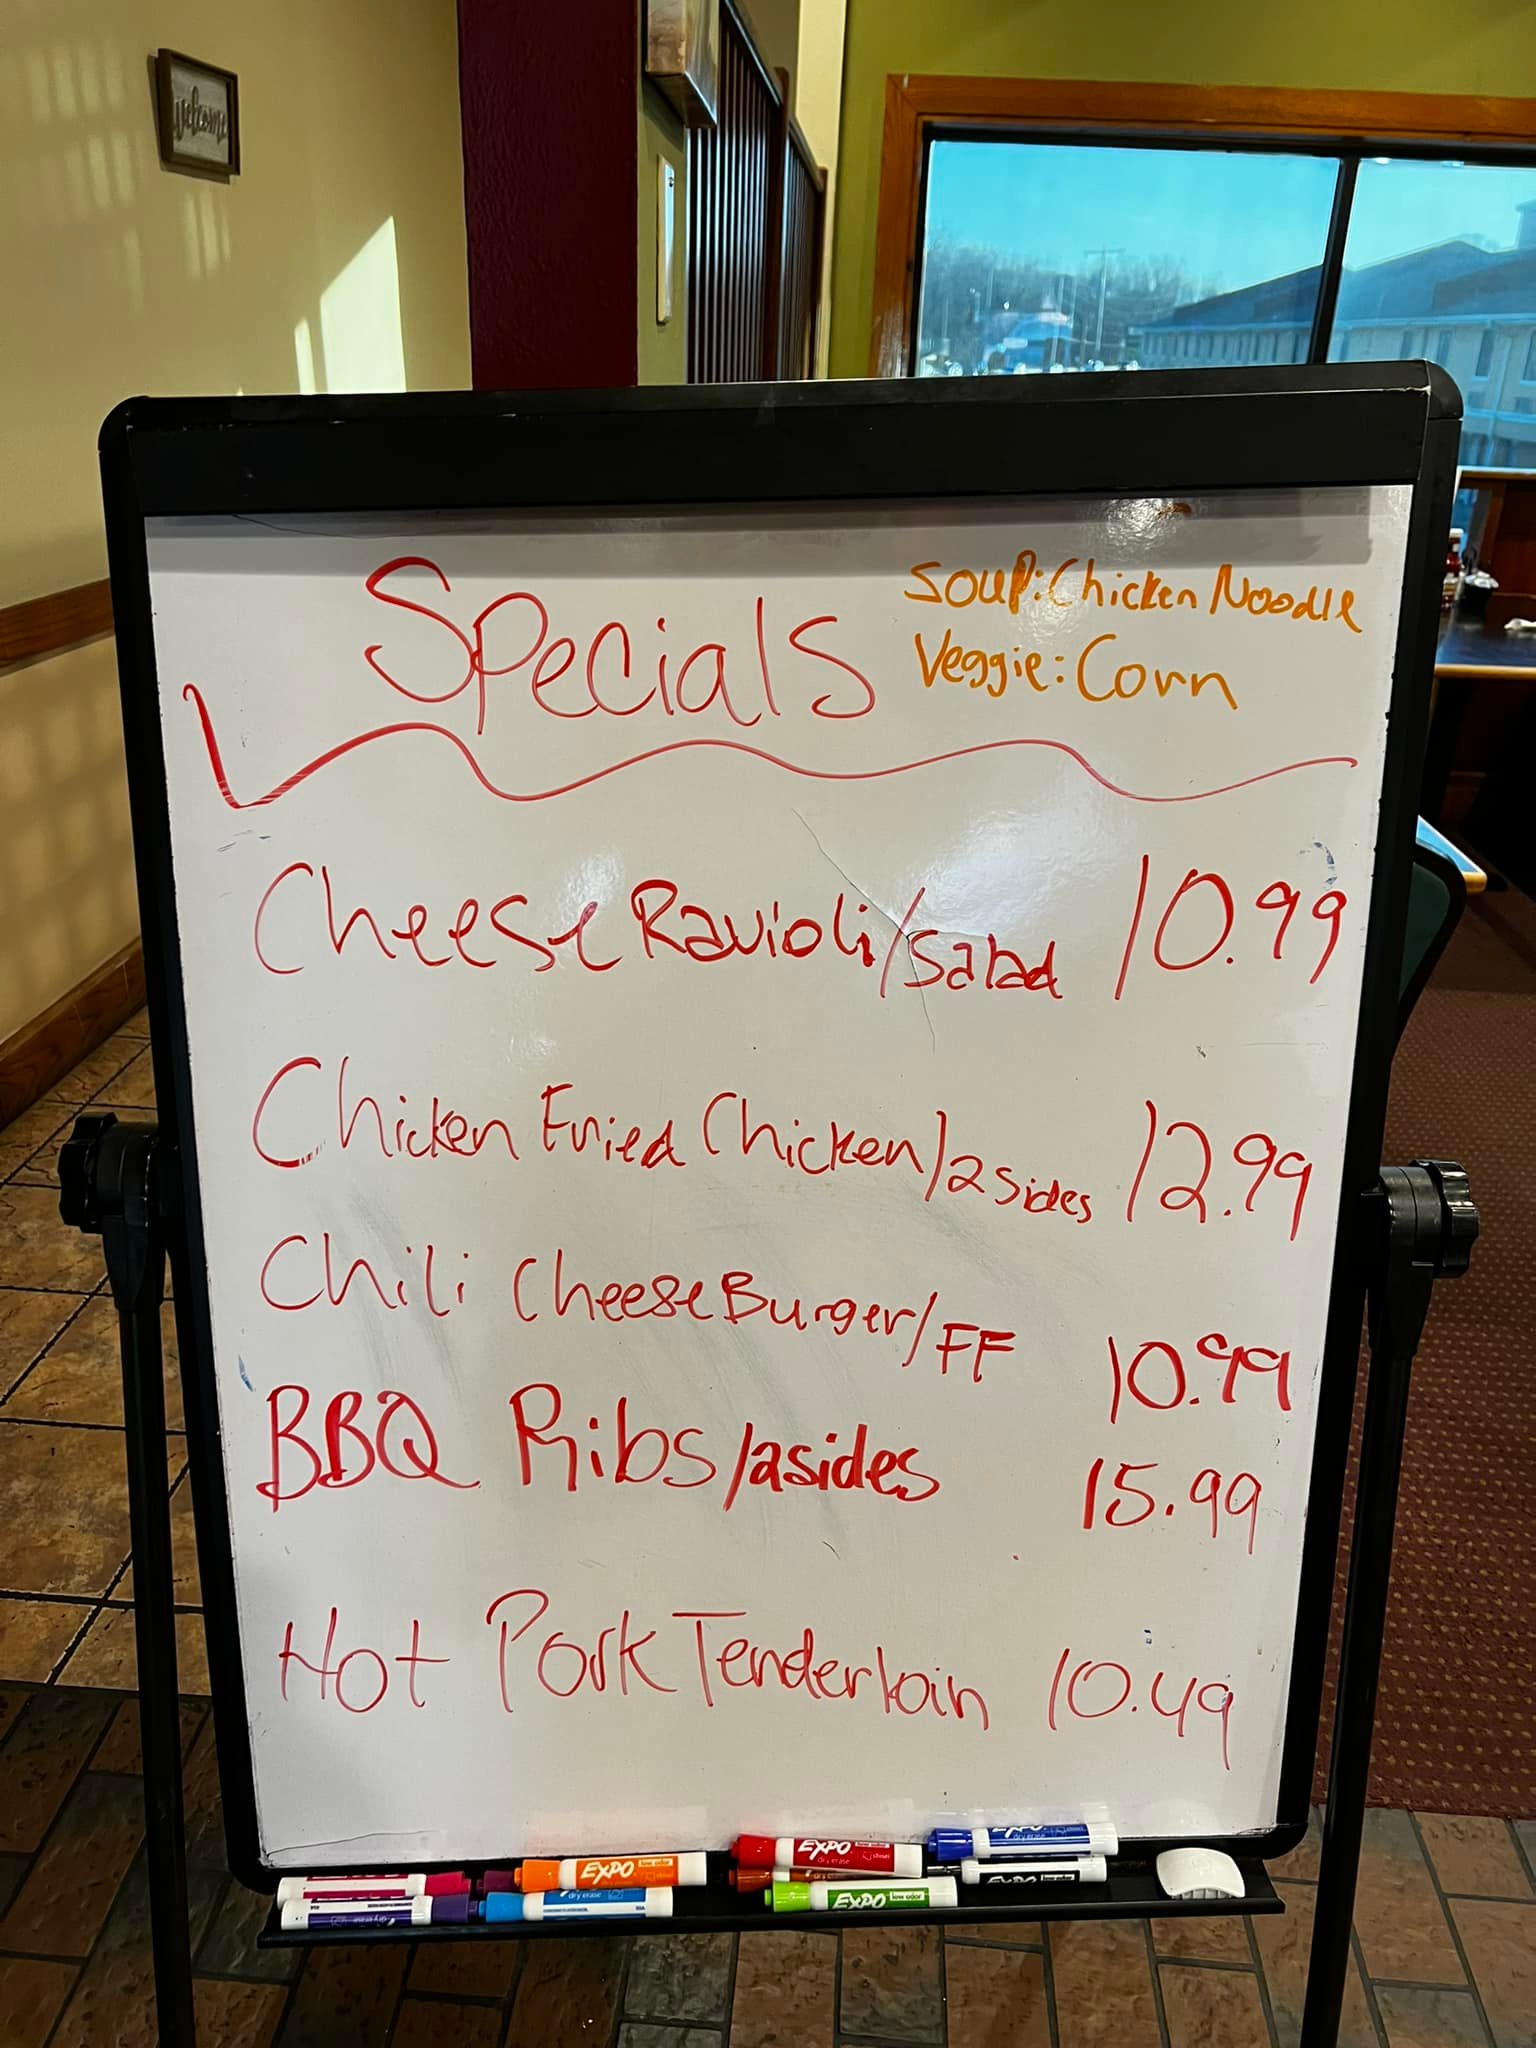 Welcome
Specials
Soup: Chicken Noodle
Veggie: Corn
Cheese Ravioli/Salad 10.99
Chicken Fried Chicken/2 sides 12.99
Chili Cheese Burger/FF 10.99
BBQ Ribs/2sides 15.99
Hot Pork Tenderloin 10.49
EXPO low odor
EXPO low odor
dry erase chisel
EXPO
dry erase
EXPO
dry erase
EXPO low odor